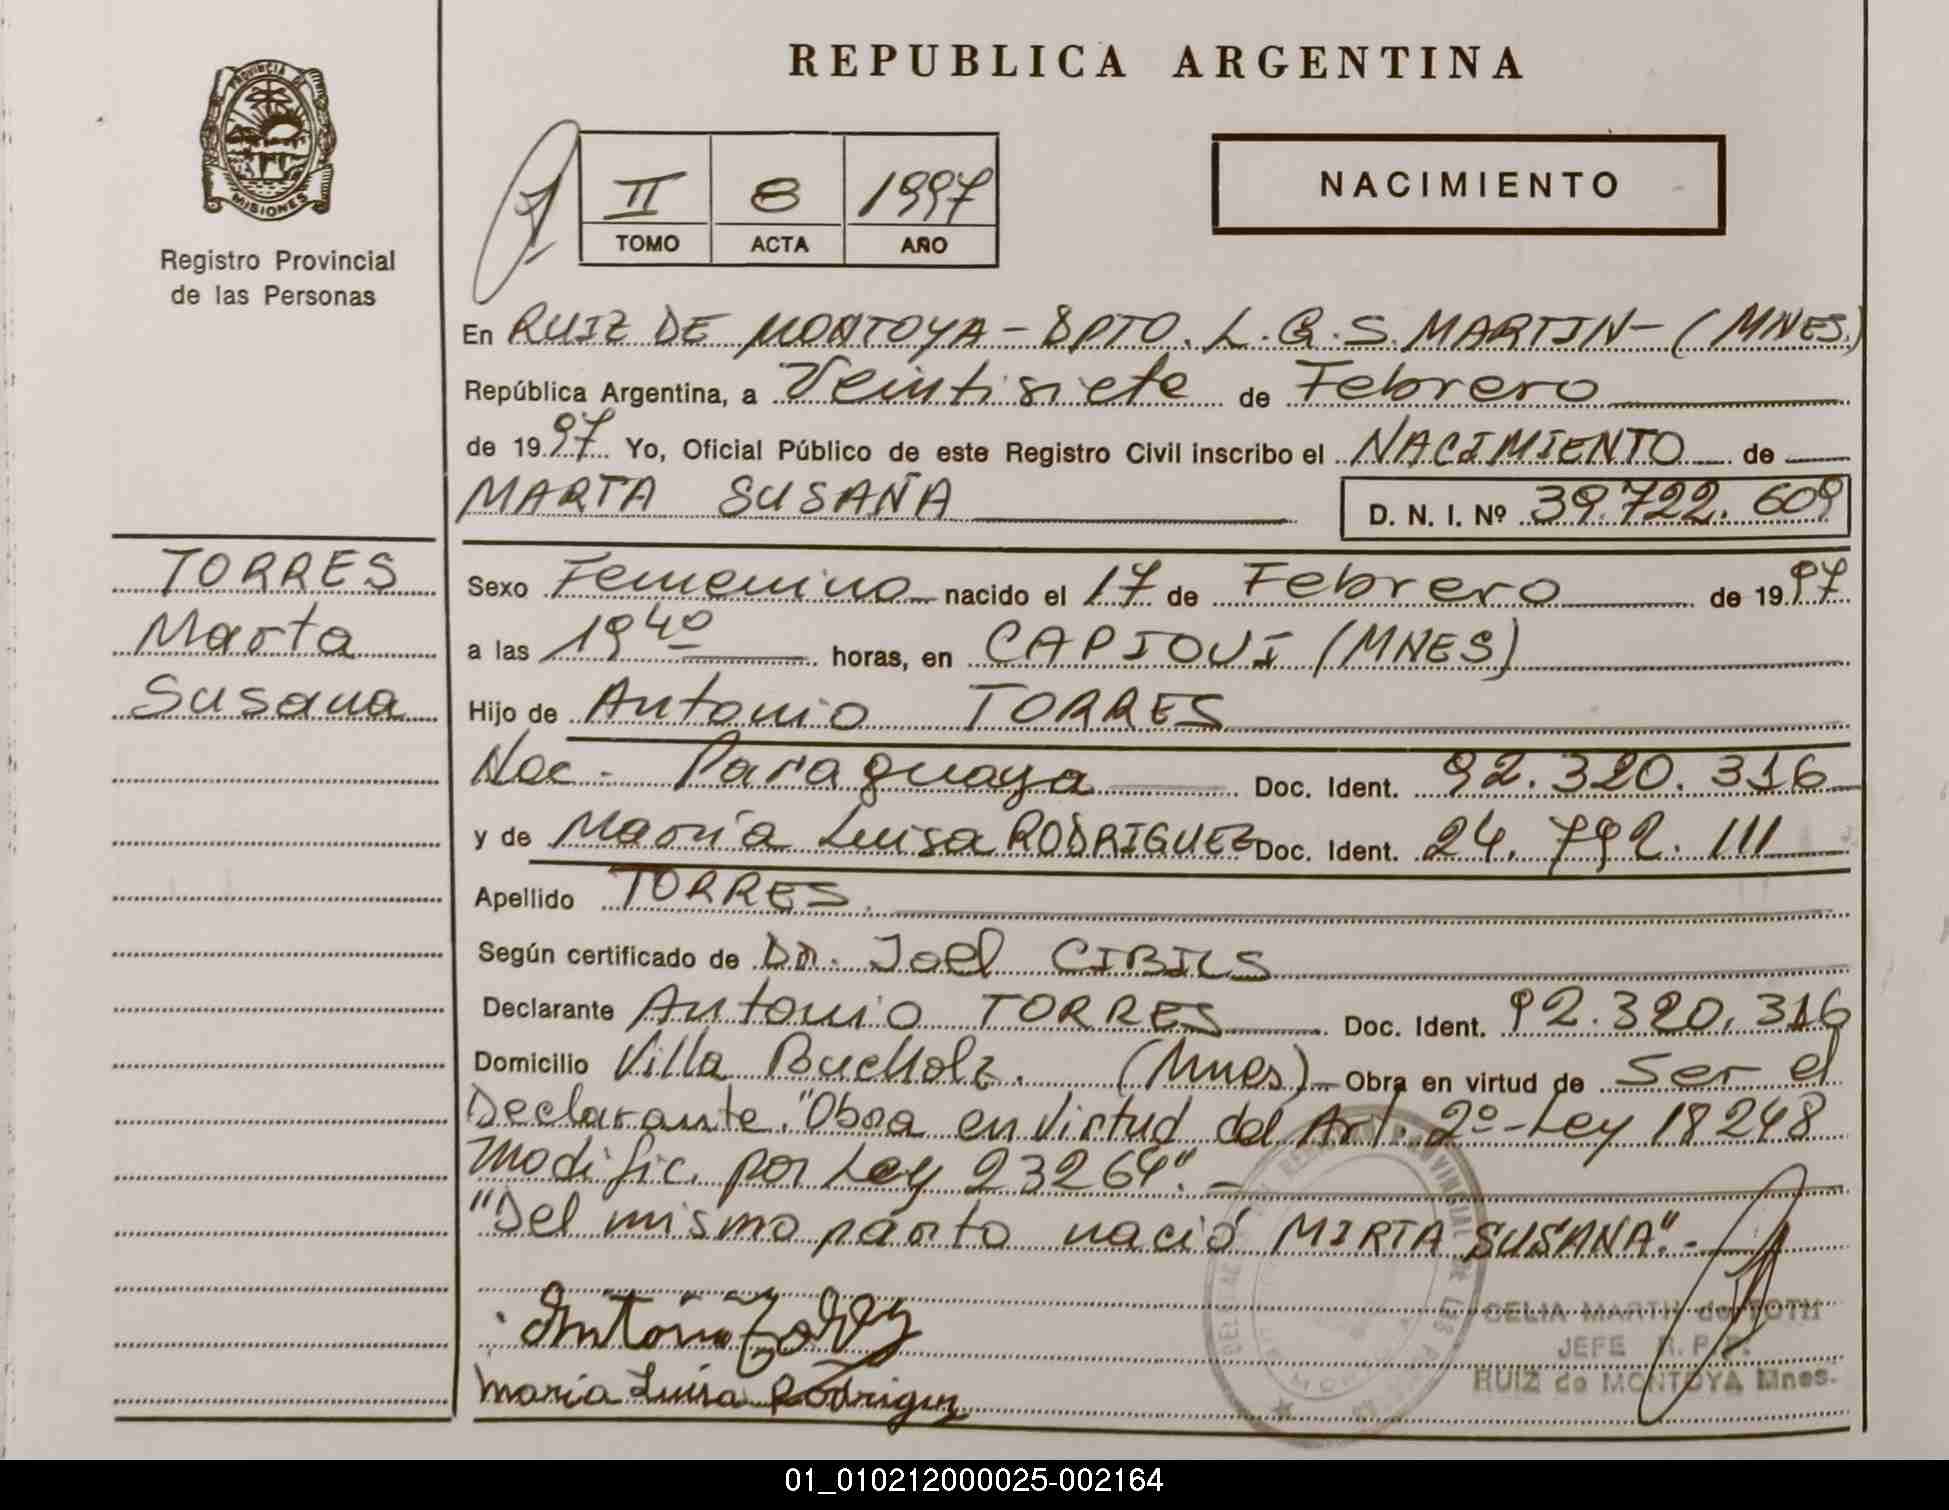 PROVINCIA DE
MISIONES
Registro Provincial
de las Personas
REPUBLICA ARGENTINA
II 8 1997
TOMO ACTA AÑO
NACIMIENTO
En RUIZ DE MONTOYA - DPTO. L.G.S. MARTIN - (MNES.)
República Argentina, a Veintisiete de Febrero
de 1997 Yo, Oficial Público de este Registro Civil inscribo el NACIMIENTO de
MARTA SUSANA D. N. I. Nº 39.722.609
TORRES
Marta
Susana
Sexo Femenino nacido el 17 de Febrero de 1997
a las 19 40 horas, en CAPIOVI (MNES)
Hijo de Antonio TORRES
Nac. Paraguaya Doc. Ident. 92.320.316
y de María Luisa RODRIGUEZ Doc. Ident. 24.792.111
Apellido TORRES.
Según certificado de Dr. Joel CIBILS
Declarante Antonio TORRES Doc. Ident. 92.320.316
Domicilio Villa Bucholz. (Mnes) Obra en virtud de Ser el
Declarante. "Obra en virtud del Art. 2º - Ley 18248
Modific. por Ley 23264". -
"Del mismo parto nació MIRTA SUSANA". -
Antonio Torres
María Luisa Rodriguez
CELIA MARTH de TOTH
JEFE R. P. P.
RUIZ de MONTOYA Mnes.
01_010212000025-002164